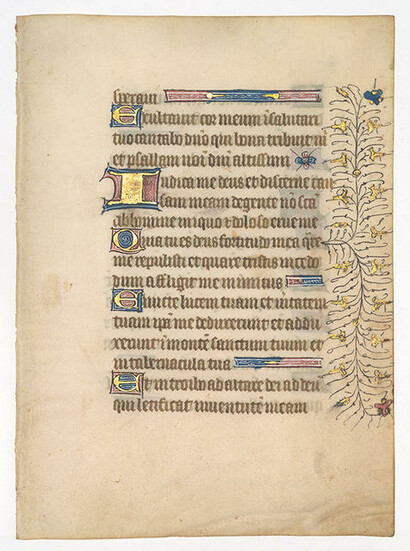 peravi
Exultavit cor meum ī salutari
tuo cantabo dño qui bona tribuit m̄
et psallam noī dñi altissimi
Iudica me deus et discerne cau
sam meam de gente nō scā
ab homine iniquo ⁊ doloso erue me
Quia tu es deus fortitudo mea qre
me repulisti et quare tristis incedo
dum affligit me inimicus
Emitte lucem tuam et vītatem
tuam ipā me deduxerunt et addu
xerunt ī montē sanctum tuum et
in tabernacula tua
Et introibo ad altare dei ad deū
qui letificat iuventutē meam